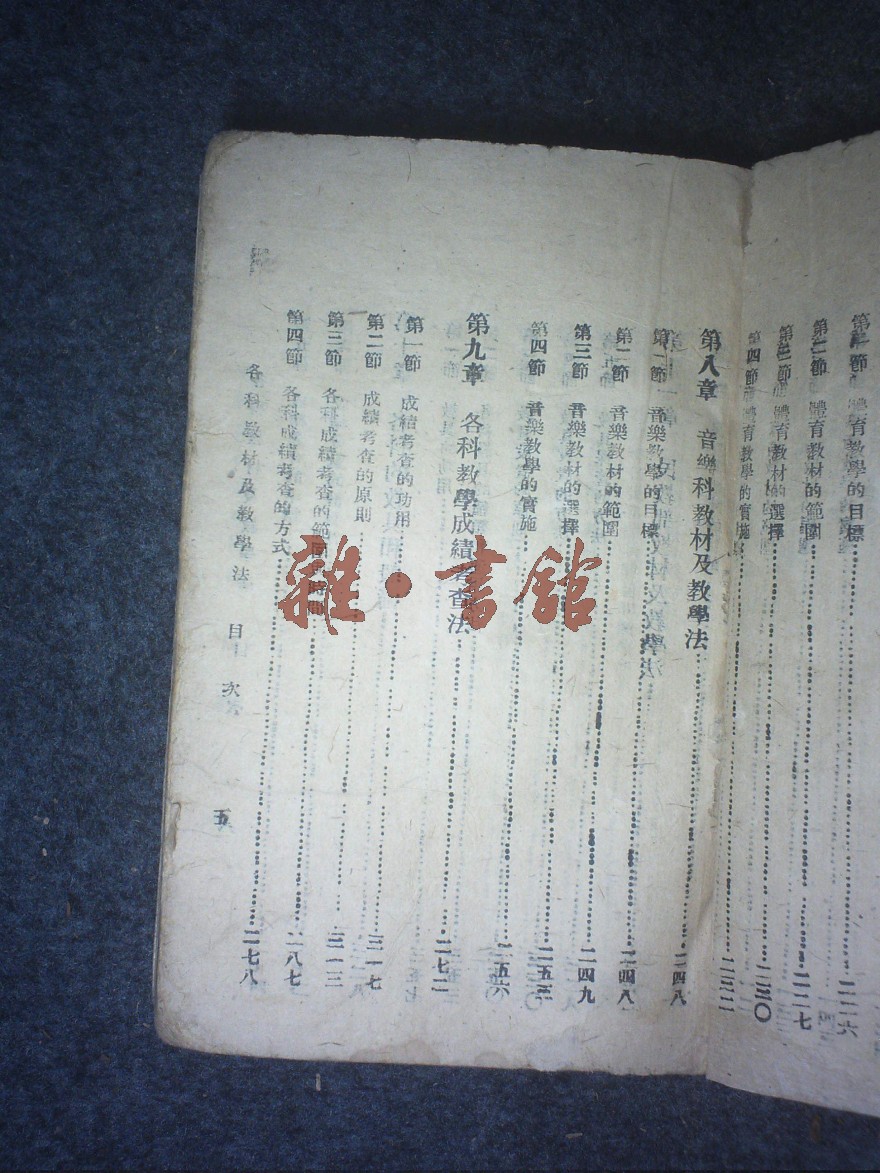 第一節 體育教學的目標……二二六
第二節 體育教材的範圍……二二七
第三節 體育教材的選擇……二三〇
第四節 體育教學的實施……二三二
第八章 音樂科教材及教學法……二四八
第一節 音樂教學的目標……二四八
第二節 音樂教材的範圍……二四九
第三節 音樂教材的選擇……二五三
第四節 音樂教學的實施……二五六
第九章 各科教學成績考查法……二七二
第一節 成績考查的功用……
第二節 成績考查的原則……
第三節 各科成績考查的範圍……二八七
第四節 各科成績考查的方式……二七八
各科教材及教學法 目次 五
雜·書館